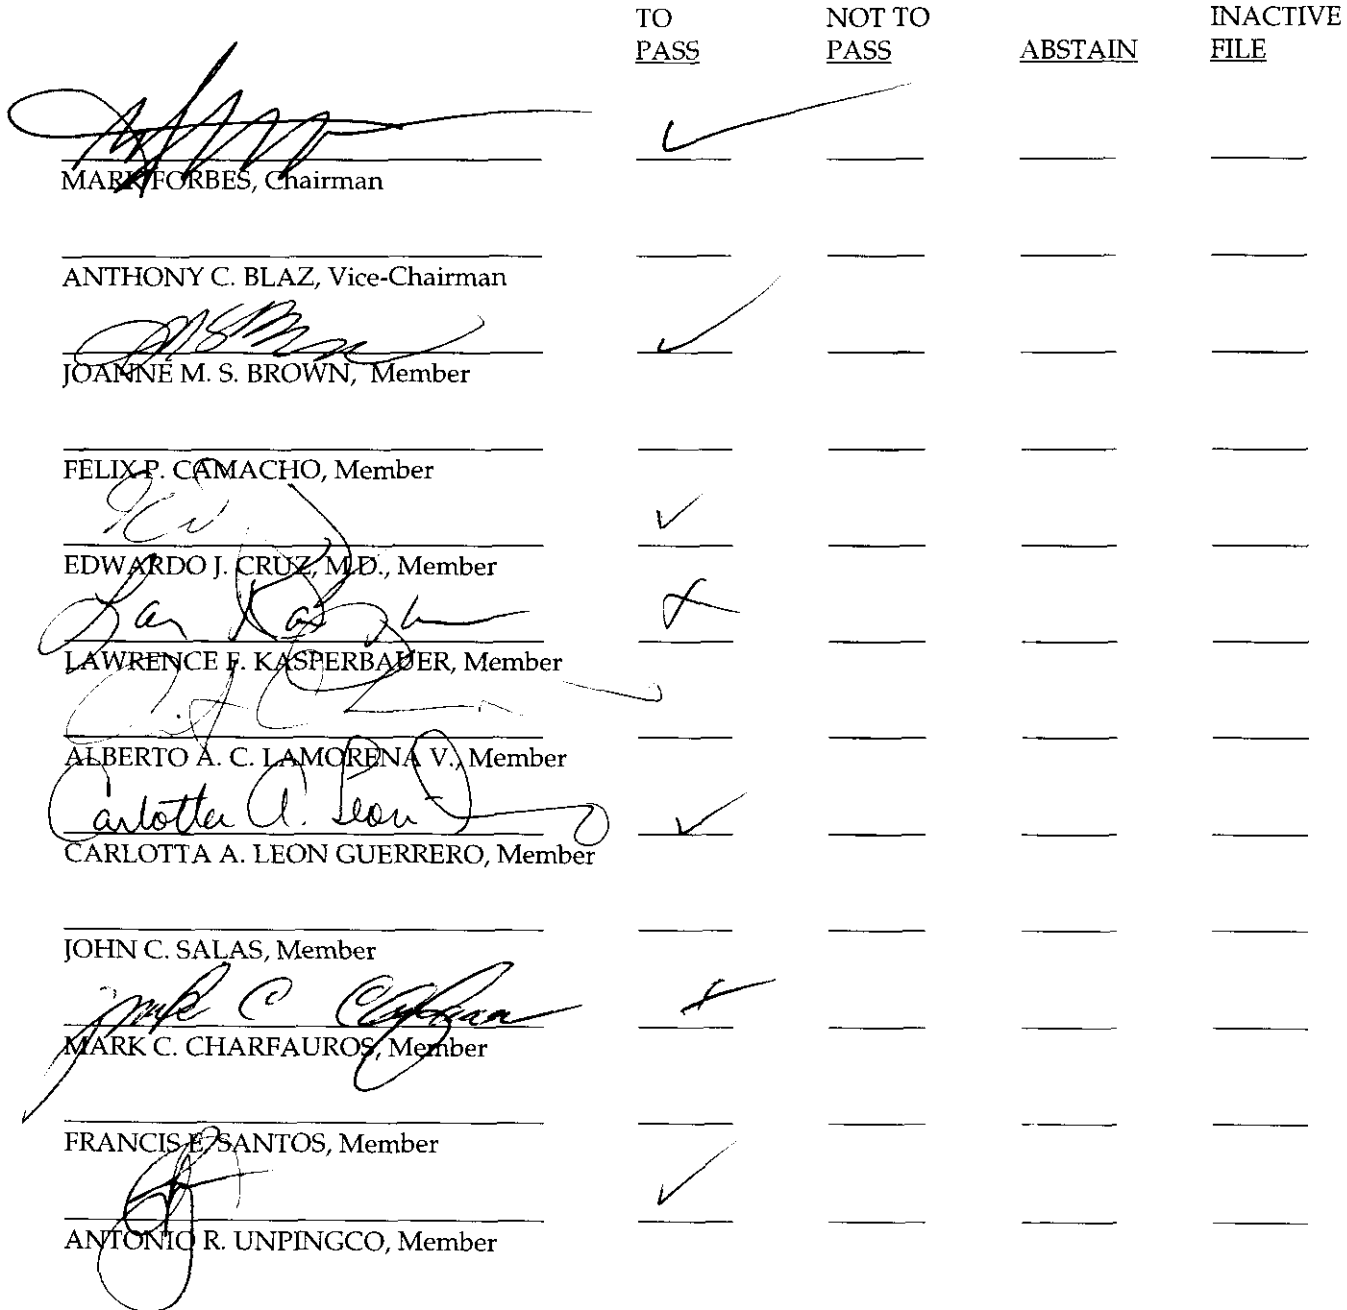 TO NOT TO INACTIVE
PASS PASS ABSTAIN FILE
MARK FORBES, Chairman
ANTHONY C. BLAZ, Vice-Chairman
JOANNE M. S. BROWN, Member
FELIX P. CAMACHO, Member
EDWARDO J. CRUZ, M.D., Member
LAWRENCE F. KASPERBAUER, Member
ALBERTO A. C. LAMORENA V., Member
Carlotta A. Leon
CARLOTTA A. LEON GUERRERO, Member
JOHN C. SALAS, Member
MARK C. CHARFAUROS, Member
FRANCIS E. SANTOS, Member
ANTONIO R. UNPINGCO, Member